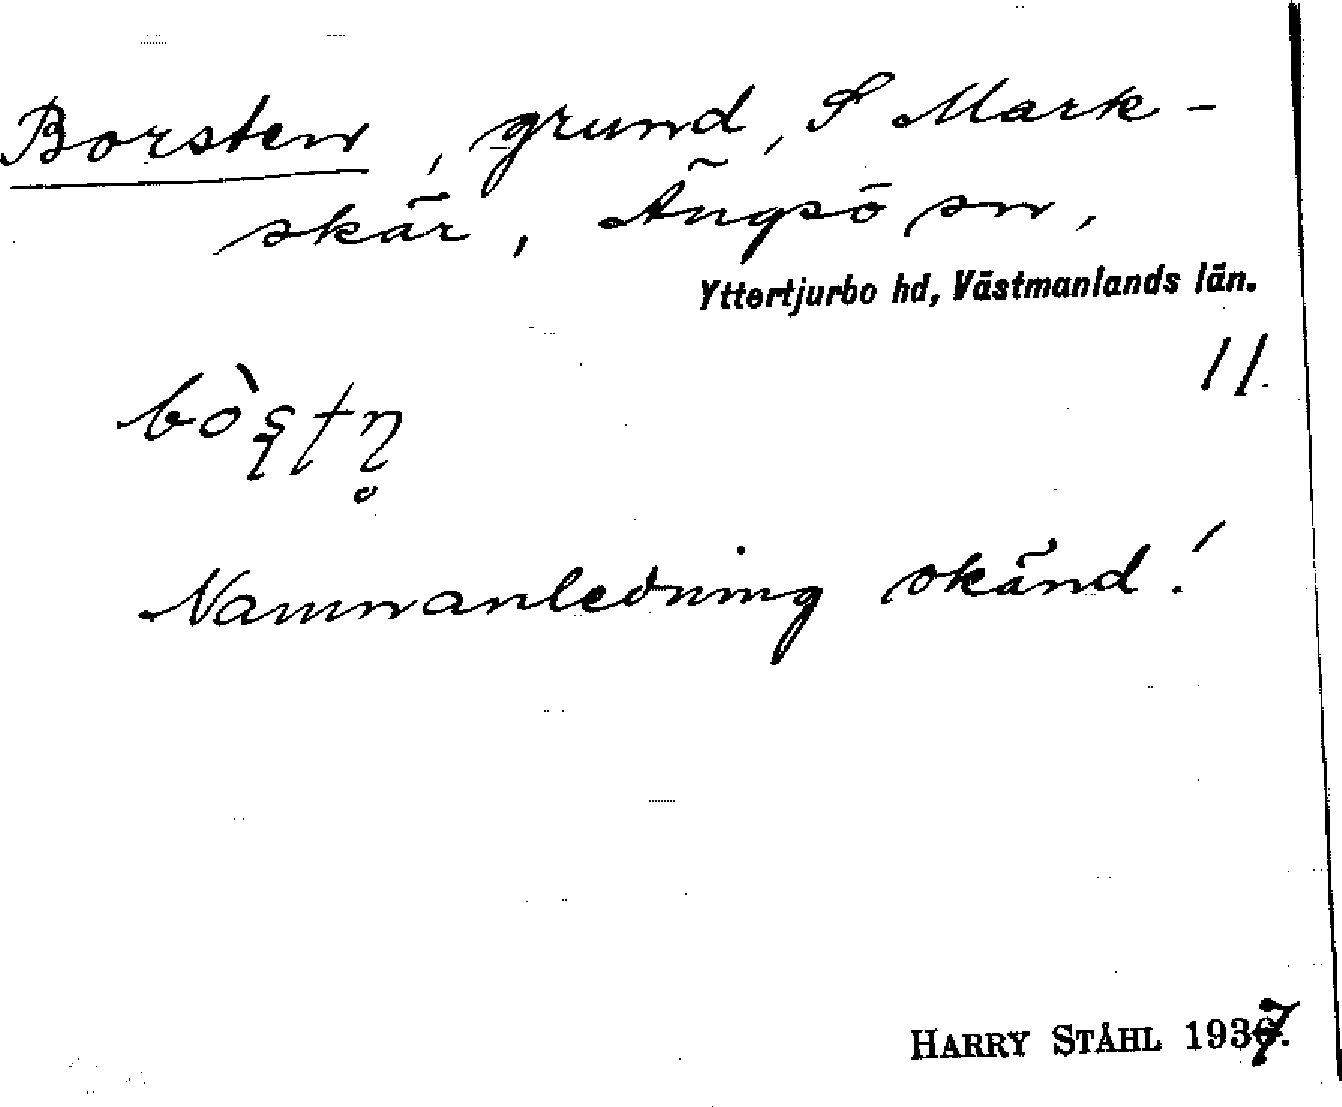 Borsten, grund, S Mark-
skär, Ängsö sn,
Yttertjurbo hd, Västmanlands län.
11
Namnanledning okänd!
HARRY STÅHL 1937.